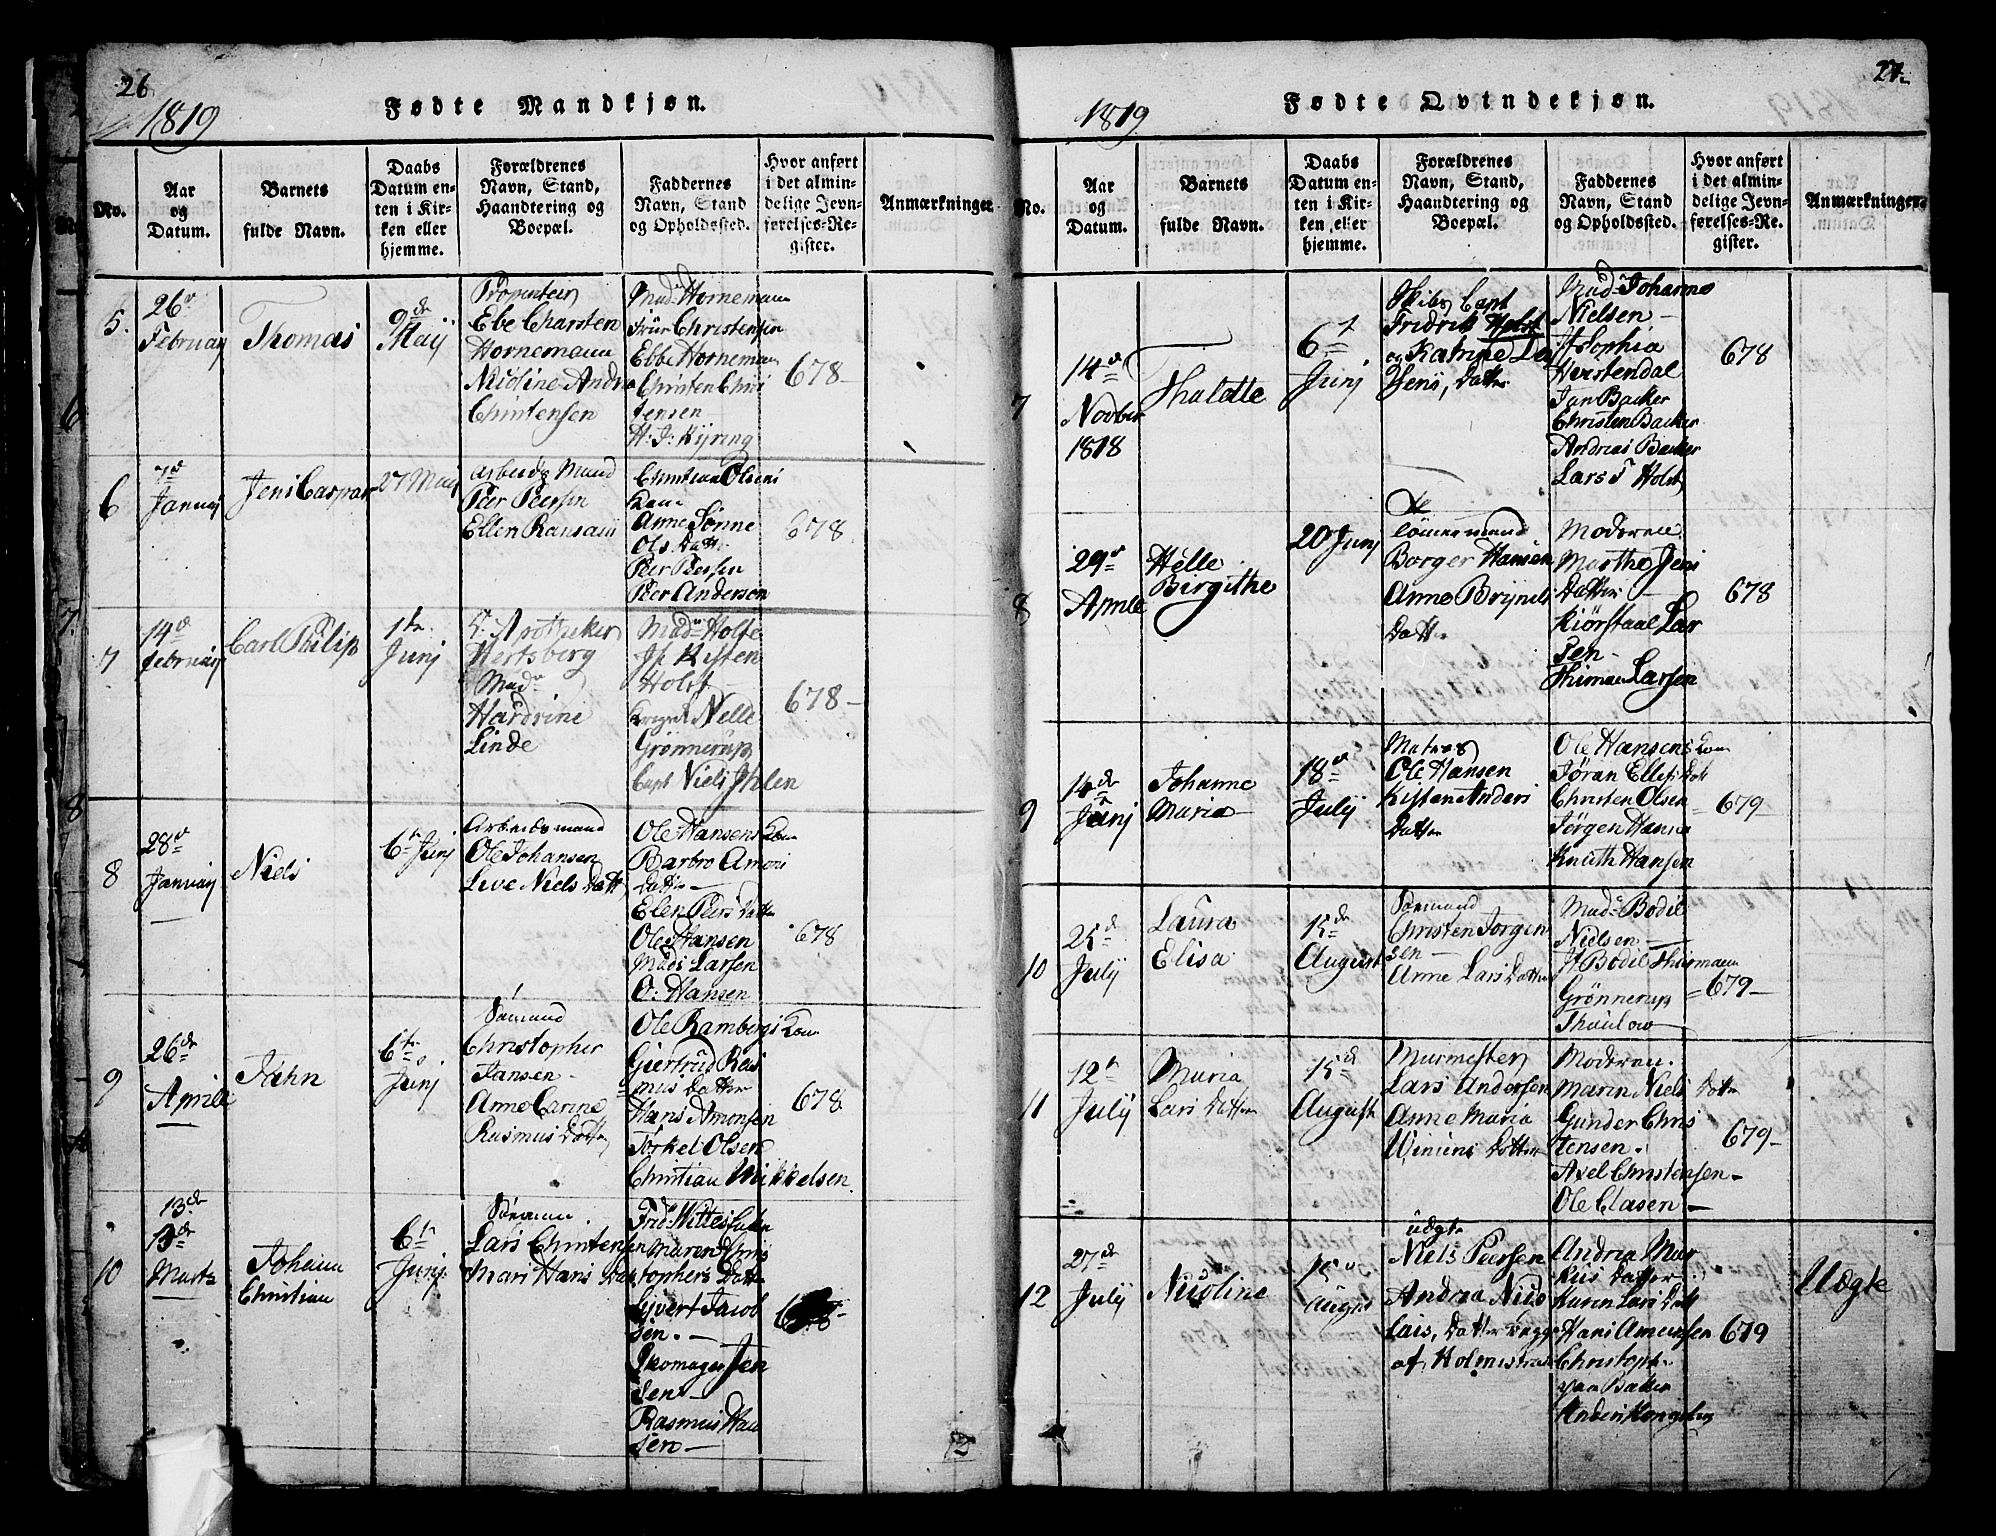 26
1819
Fødte Mandkjøn.
No.
Aar
og
Datum.
Barnets
fulde Navn.
Daabs
Datum en-
ten i Kir-
ken eller
hjemme.
Forældrenes
Navn, Stand,
Haandtering og
Boepæl.
Faddernes
Navn, Stand
og Opholdssted.
Hvor anført
i det almin-
delige Jevn-
førelses-Re-
gister.
Anmærkninger
5.
26
Februay
Thomas
9de
Maij
Ebe Charsten
Hornemann
Nicoline Andrea
Christensen
Mad Hornemann
Christensen
Ebbe Horneman
Christen Chris
tensen
H: J: Kyring
678
6
7d
Januay
Jens Caspar
27 Maij
Arbeids Mand
Peer Peersen
Ellen
Christian Olsens
Kone
Anne Tønne
Ols Datt
Peer Peersen
Peer Anderson
678
7
14d
Februay
Carl Philip
1te
Junj
Apotheker
Hertsberg
Madm
Hardrine
Linde
Madm Holte
Jf Kisten
Holst
Nelle
Grønnerup
Capt Niels Ihlen
678
8
28
Januay
Niels
6te Junj
Arbeidsmand
Ole Johansen
Live Niels Datt
Ole Hansens Kone
Barbro Amons
Datter
Elen Peers Datter
Ole Hansen
Mads Larsen
O: Hansen
678
9
26de
Aprile
Jahn
6te
Junj
Sømand
Christopher
Jansen
Anne Carine
Rasmus Datter
Ole Rambergs Kone
Giertrud Ras
mus Datter
Hans Amonsen
Torkel Olsen
Christian Mikkelsen
678
10
13de
13de
Marts
Johann
Christian
6te
Junj
Sømann
Lars Christensen
Mari Hans Datt
Maren Chris
tophers Datter
Syvert Jacob
sen.
Skomager Jen
sen
Rasmus Han
sen
678
27.
1819
Fødte Qvindekjøn.
No.
Aar
og
Datum.
Barnets
fulde Navn.
Daabs
Datum en-
ten i Kir-
ken eller
hjemme.
Forældrenes
Navn, Stand,
Haandtering og
Boepæl.
Faddernes
Navn, Stand
og Opholdssted.
Hvor anført
i det almin-
delige Jevn-
førelses-Re-
gister.
Anmærkninger
7
14d
Novber
1818
Thalette
6te
Junj
Skibs Capt
Fridrik Holst
og Katrine
Datter
Mad Johanne
Nielsen
Jf Sophia
Herstendal
Jan Backer
Christen Backer
Andreas Backer
Lars T Holst
678
8
29
Aprile
Helle
Birgithe
20 Junj
Borger Hansen
Anne Brynils
Datter
Moderen
Marthe Jens
Datter
Kiørstaal Lar
sen
Thiman Larsen
678
9
14de
Junj
Johanne
Maria
18
Julij
Matros
Ole Hansen
Kistene Anders
Datter
Ole Hansens Kone
Jøran Ellefs Datt
Christen Olsen
Jørgen Hansen
Knuth Hansen
679
10
25d
Julij
Laura
Elisa
15de
August
Sømand
Christen Jørgen
sen
Anne Lars Datter
Mad Bodil
Nielsen
Jf Bodil Thurmann
Grønnerup
Thaulow
679
11
12te
Julij
Maria
Lars Datter
15d
August
Murmester
Lars Andersen
Anne Maria
Datter
Moderen
Maren Niels Datter
Gunder Chris
tensen
Axel Christensen
Ole Clasen
679
12
27de
Julij
Nicoline
15
August
Uægte
Niels Peersen
Andrea Nico
lais, Datter begge
af Holmestrand
Andrea Mar
kus Datter
Karen Lars Datt
Hans Amensen
Christoph
Backer
Anders Kongsberg
679
Uægte